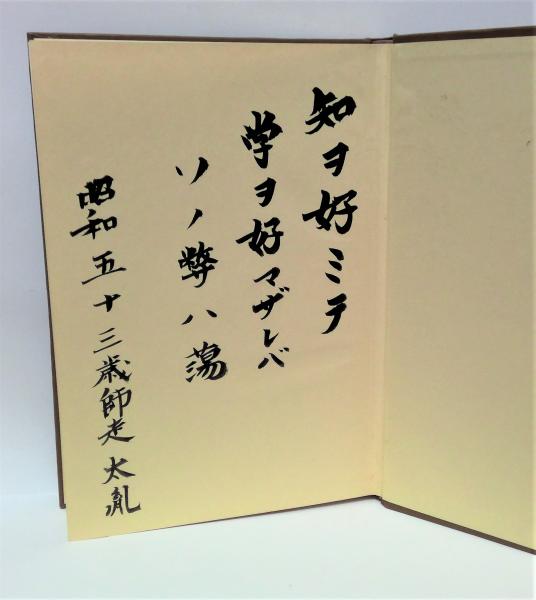 知ヲ好ミテ
学ヲ好マザレバ
ソノ弊ハ蕩
昭和五十三歳師走 太胤